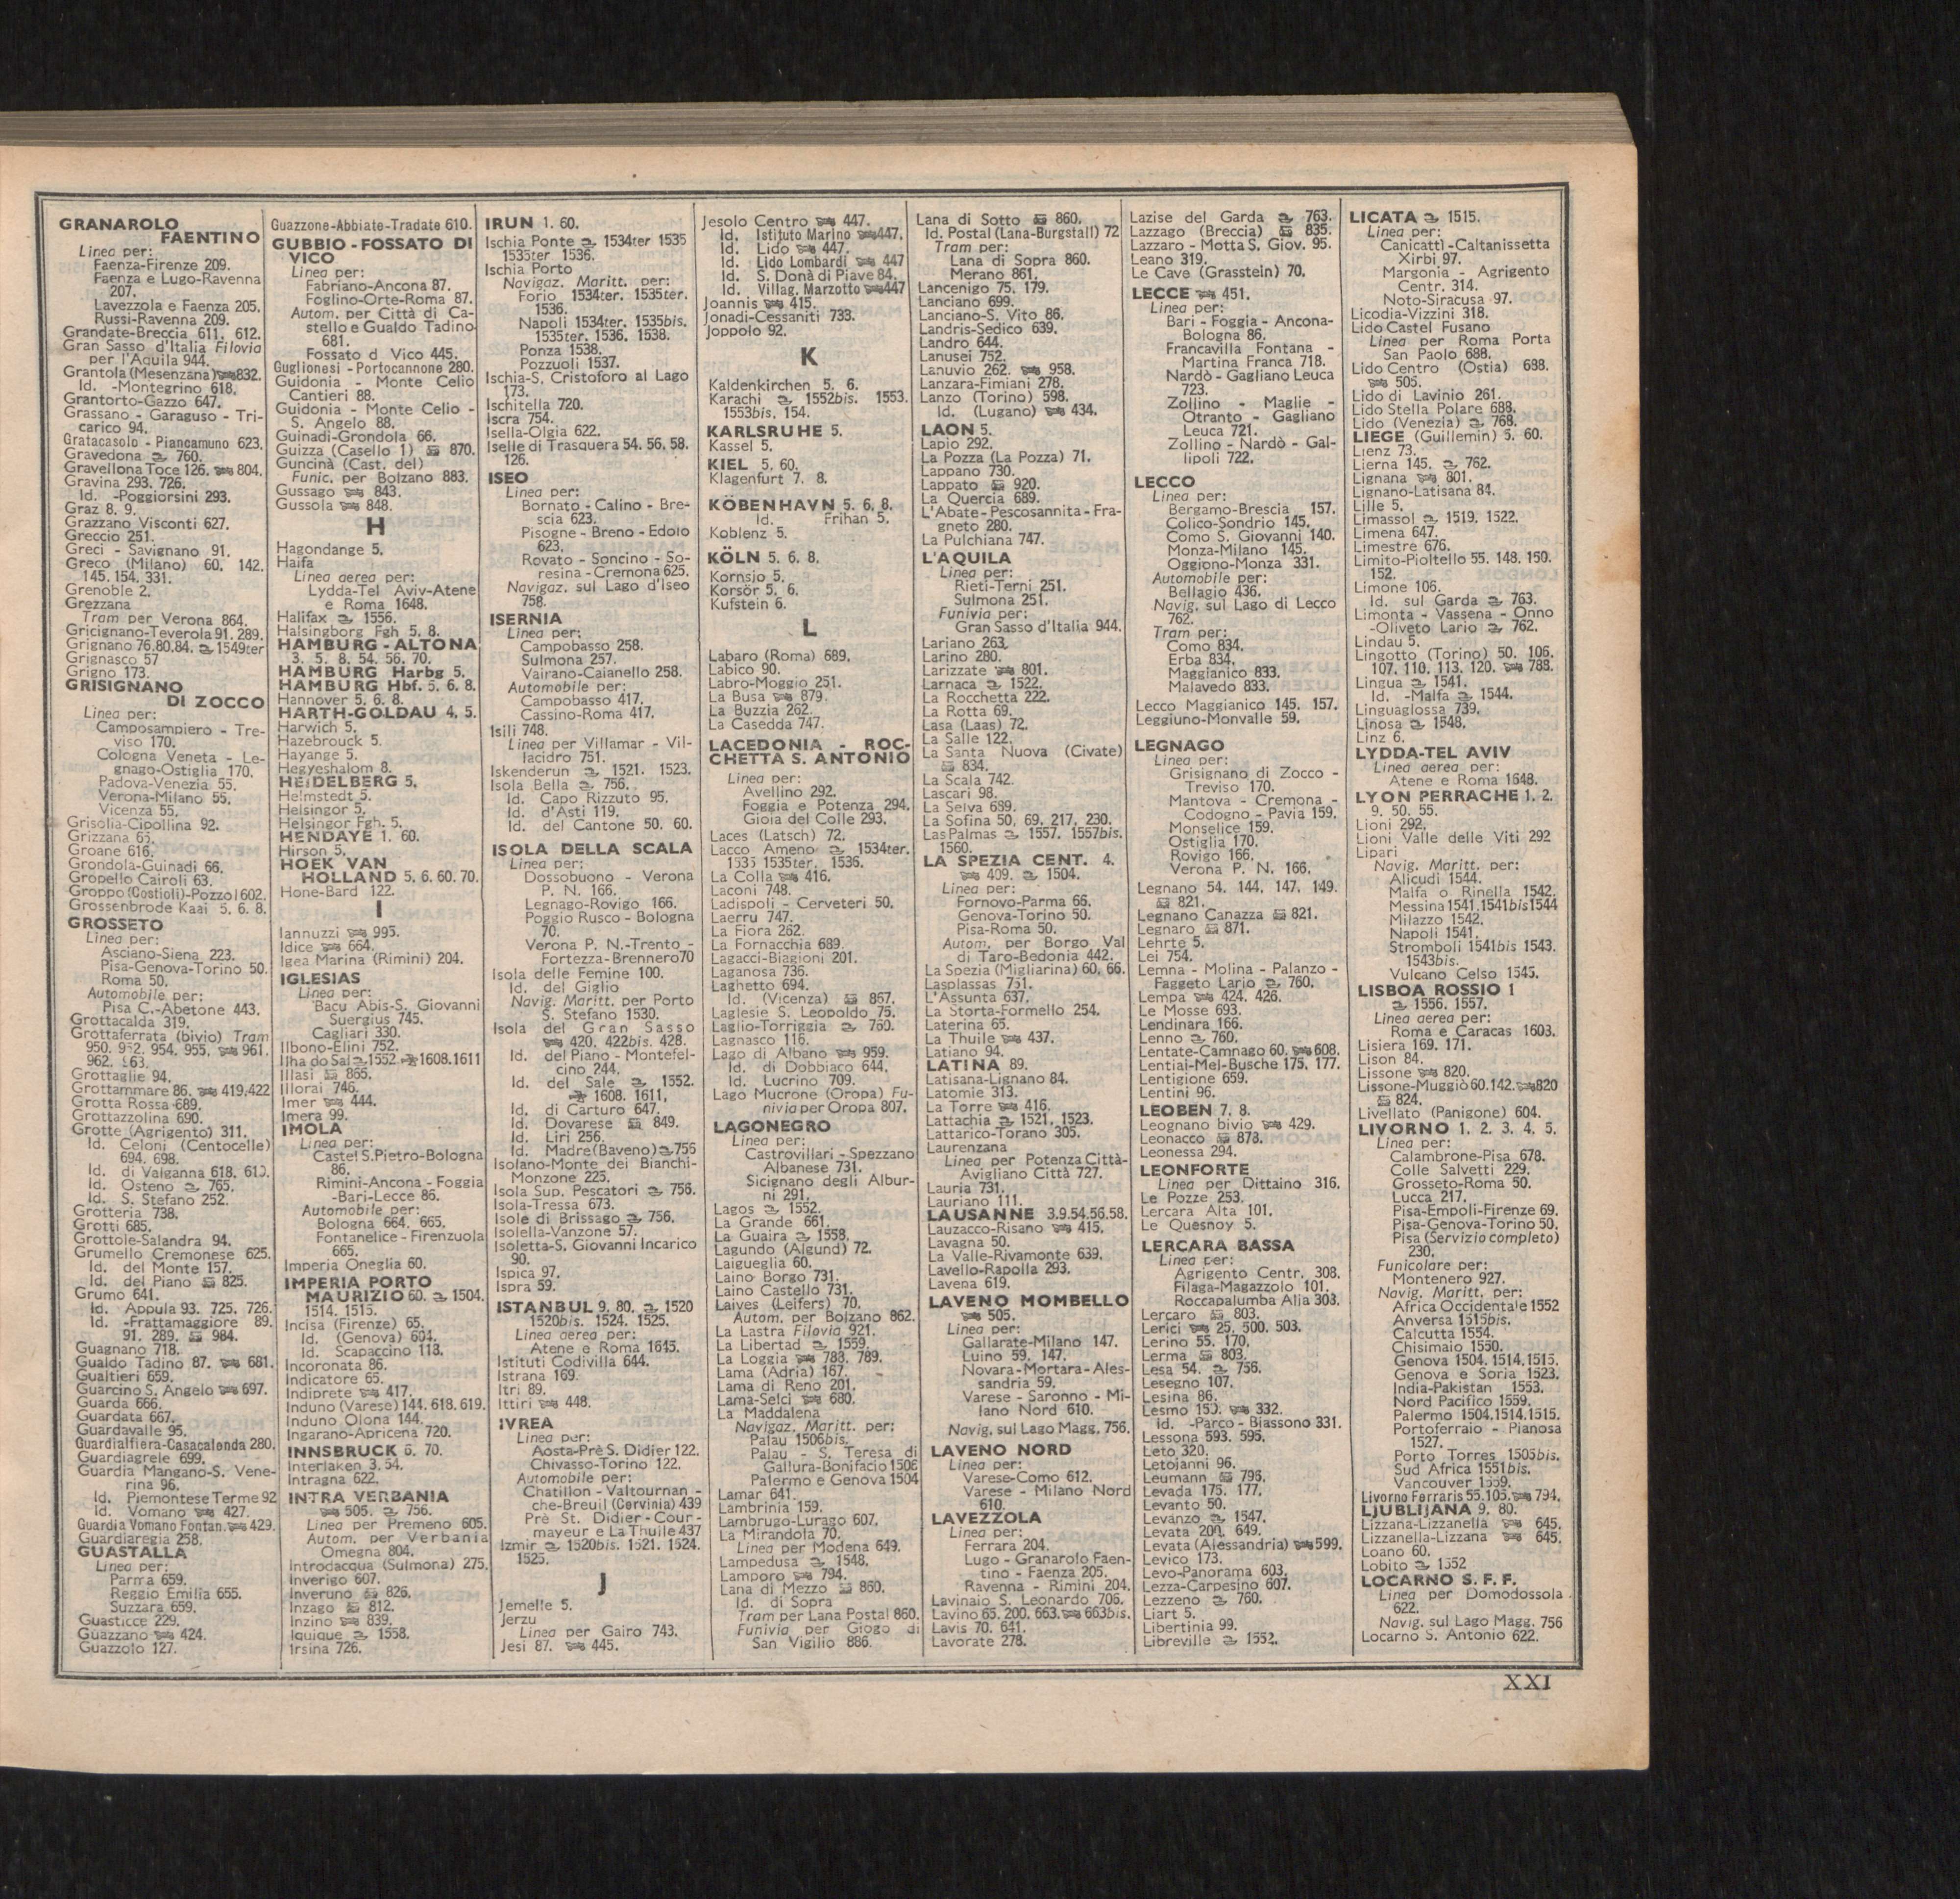 GRANAROLO
FAENTINO
Linea per:
Faenza-Firenze 209.
Faenza e Lugo-Ravenna
207.
Lavezzola e Faenza 205.
Russi-Ravenna 209.
Grandate-Breccia 611. 612.
Gran Sasso d'Italia Filovia
per l'Aquila 944.
Grantola (Mesenzana) 832.
Id. -Montegrino 618.
Grantorto-Gazzo 647.
Grassano - Garaguso - Tri-
carico 94.
Gratacasolo - Piancamuno 623.
Gravedona 760.
Gravellona Toce 126. 804.
Gravina 293. 726.
Id. -Poggiorsini 293.
Graz 8. 9.
Grazzano Visconti 627.
Greccio 251.
Greci - Savignano 91.
Greco (Milano) 60. 142.
145. 154. 331.
Grenoble 2.
Grezzana
Tram per Verona 864.
Gricignano-Teverola 91. 289.
Grignano 76.80.84. 1549ter
Grignasco 57
Grigno 173.
GRISIGNANO
DI ZOCCO
Linea per:
Camposampiero - Tre-
viso 170.
Cologna Veneta - Le-
gnago-Ostiglia 170.
Padova-Venezia 55.
Verona-Milano 55.
Vicenza 55.
Grisolia-Cipollina 92.
Grizzana 65.
Groane 616.
Grondola-Guinadi 66.
Gropello Cairoli 63.
Groppo (Costioli)-Pozzol 602.
Grossenbrode Kaai 5. 6. 8.
GROSSETO
Linea per:
Asciano-Siena 223.
Pisa-Genova-Torino 50.
Roma 50.
Automobile per:
Pisa C.-Abetone 443.
Grottacalda 319.
Grottaferrata (bivio) Tram
950. 952. 954. 955. 961.
962. 963.
Grottaglie 94.
Grottammare 86. 419.422
Grotta Rossa 689.
Grottazzolina 690.
Grotte (Agrigento) 311.
Id. Celoni (Centocelle)
694. 698.
Id. di Valganna 618. 619.
Id. Osteno 765.
Id. S. Stefano 252.
Grotteria 738.
Grotti 685.
Grottole-Salandra 94.
Grumello Cremonese 625.
Id. del Monte 157.
Id. del Piano 825.
Grumo 641.
Id. Appula 93. 725. 726.
Id. -Frattamaggiore 89.
91. 289. 984.
Guagnano 718.
Gualdo Tadino 87. 681.
Gualtieri 659.
Guarcino S. Angelo 697.
Guarda 666.
Guardata 667.
Guardavalle 95.
Guardialfiera-Casacalenda 280.
Guardiagrele 699.
Guardia Mangano-S. Vene-
rina 96.
Id. Piemontese Terme 92
Id. Vomano 427.
Guardia Vomano Fontan. 429.
Guardiaregia 258.
GUASTALLA
Linea per:
Parma 659.
Reggio Emilia 655.
Suzzara 659.
Guasticce 229.
Guazzano 424.
Guazzolo 127.
Guazzone-Abbiate-Tradate 610.
GUBBIO - FOSSATO DI
VICO
Linea per:
Fabriano-Ancona 87.
Foglino-Orte-Roma 87.
Autom. per Città di Ca-
stello e Gualdo Tadino
681.
Fossato d Vico 445.
Guglionesi - Portocannone 280.
Guidonia - Monte Celio
Cantieri 88.
Guidonia - Monte Celio -
S. Angelo 88.
Guinadi-Grondola 66.
Guizza (Casello 1) 870.
Guncinà (Cast. del)
Funic. per Bolzano 883.
Gussago 843.
Gussola 848.
H
Hagondange 5.
Haifa
Linea aerea per:
Lydda-Tel Aviv-Atene
e Roma 1648.
Halifax 1556.
Halsingborg Fgh 5. 8.
HAMBURG - ALTONA
3. 5. 8. 54. 56. 70.
HAMBURG Harbg 5.
HAMBURG Hbf. 5. 6. 8.
Hannover 5. 6. 8.
HARTH-GOLDAU 4. 5.
Harwich 5.
Hazebrouck 5.
Hayange 5.
Hegyeshalom 8.
HEIDELBERG 5.
Helmstedt 5.
Helsingör 5.
Helsingor Fgh. 5.
HENDAYE 1. 60.
Hirson 5.
HOEK VAN
HOLLAND 5. 6. 60. 70.
Hone-Bard 122.
I
Iannuzzi 995.
Idice 664.
Igea Marina (Rimini) 204.
IGLESIAS
Linea per:
Bacu Abis-S. Giovanni
Suergius 745.
Cagliari 330.
Ilbono-Elini 752.
Ilha do Sal 1552. 1608.1611
Illasi 865.
Illorai 746.
Imer 444.
Imera 99.
IMOLA
Linea per:
Castel S.Pietro-Bologna
86.
Rimini-Ancona - Foggia
-Bari-Lecce 86.
Automobile per:
Bologna 664. 665.
Fontanelice - Firenzuola
665.
Imperia Oneglia 60.
IMPERIA PORTO
MAURIZIO 60. 1504.
1514. 1515.
Incisa (Firenze) 65.
Id. (Genova) 604.
Id. Scapaccino 118.
Incoronata 86.
Indicatore 65.
Indiprete 417.
Induno (Varese) 144. 618. 619.
Induno Olona 144.
Ingarano-Apricena 720.
INNSBRUCK 6. 70.
Interlaken 3. 54.
Intragna 622.
INTRA VERBANIA
505. 756.
Linea per Premeno 605.
Autom. per Verbania
Omegna 804.
Introdacqua (Sulmona) 275.
Inverigo 607.
Inveruno 826.
Inzago 812.
Inzino 839.
Iquique 1558.
Irsina 726.
IRUN 1. 60.
Ischia Ponte 1534ter 1535
1535ter 1536.
Ischia Porto
Navigaz. Maritt. per:
Forio 1534ter. 1535ter.
1536.
Napoli 1534ter. 1535bis.
1535ter. 1536. 1538.
Ponza 1538.
Pozzuoli 1537.
Ischia-S. Cristoforo al Lago
173.
Ischitella 720.
Iscra 754.
Isella-Olgia 622.
Iselle di Trasquera 54. 56. 58.
126.
ISEO
Linea per:
Bornato - Calino - Bre-
scia 623.
Pisogne - Breno - Edolo
623.
Rovato - Soncino - So-
resina - Cremona 625.
Navigaz. sul Lago d'Iseo
758.
ISERNIA
Linea per:
Campobasso 258.
Sulmona 257.
Vairano-Caianello 258.
Automobile per:
Campobasso 417.
Cassino-Roma 417.
Isili 748.
Linea per Villamar - Vil-
lacidro 751.
Iskenderun 1521. 1523.
Isola Bella 756.
Id. Capo Rizzuto 95.
Id. d'Asti 119.
Id. del Cantone 50. 60.
ISOLA DELLA SCALA
Linea per:
Dossobuono - Verona
P. N. 166.
Legnago-Rovigo 166.
Poggio Rusco - Bologna
70.
Verona P. N.-Trento -
Fortezza-Brennero 70
Isola delle Femine 100.
Id. del Giglio
Navig. Maritt. per Porto
S. Stefano 1530.
Isola del Gran Sasso
420. 422bis. 428.
Id. del Piano - Montefel-
cino 244.
Id. del Sale 1552.
1608. 1611.
Id. di Carturo 647.
Id. Dovarese 849.
Id. Liri 256.
Id. Madre (Baveno) 756
Isolano-Monte dei Bianchi-
Monzone 225.
Isola Sup. Pescatori 756.
Isola-Tressa 673.
Isole di Brissago 756.
Isolella-Vanzone 57.
Isoletta-S. Giovanni Incarico
90.
Ispica 97.
Ispra 59.
ISTANBUL 9. 80. 1520
1520bis. 1524. 1525.
Linea aerea per:
Atene e Roma 1645.
Istituti Codivilla 644.
Istrana 169.
Itri 89.
Ittiri 448.
IVREA
Linea per:
Aosta-Prè S. Didier 122.
Chivasso-Torino 122.
Automobile per:
Chatillon - Valtournan -
che-Breuil (Cervinia) 439
Prè St. Didier - Cour -
mayeur e La Thuile 437
Izmir 1520bis. 1521. 1524.
1525.
J
Jemelle 5.
Jerzu
Linea per Gairo 743.
Jesi 87. 445.
Jesolo Centro 447.
Id. Istituto Marino 447.
Id. Lido 447.
Id. Lido Lombardi 447
Id. S. Donà di Piave 84.
Id. Villag. Marzotto 447
Joannis 415.
Jonadi-Cessaniti 733.
Joppolo 92.
K
Kaldenkirchen 5. 6.
Karachi 1552bis. 1553.
1553bis. 154.
KARLSRUHE 5.
Kassel 5.
KIEL 5. 60.
Klagenfurt 7. 8.
KÖBENHAVN 5. 6. 8.
Id. Frihan 5.
Koblenz 5.
KÖLN 5. 6. 8.
Kornsio 5.
Korsör 5. 6.
Kufstein 6.
L
Labaro (Roma) 689.
Labico 90.
Labro-Moggio 251.
La Busa 879.
La Buzzia 262.
La Casedda 747.
LACEDONIA - ROC-
CHETTA S. ANTONIO
Linea per:
Avellino 292.
Foggia e Potenza 294.
Gioia del Colle 293.
Laces (Latsch) 72.
Lacco Ameno 1534ter.
1535 1535ter. 1536.
La Colla 416.
Laconi 748.
Ladispoli - Cerveteri 50.
Laerru 747.
La Fiora 262.
La Fornacchia 689.
Lagacci-Biagioni 201.
Laganosa 736.
Laghetto 694.
Id. (Vicenza) 867.
Laglesie S. Leopoldo 75.
Laglio-Torriggia 760.
Lagnasco 116.
Lago di Albano 959.
Id. di Dobbiaco 644.
Id. Lucrino 709.
Lago Mucrone (Oropa) Fu-
nivia per Oropa 807.
LAGONEGRO
Linea per:
Castrovillari - Spezzano
Albanese 731.
Sicignano degli Albur-
ni 291.
Lagos 1552.
La Grande 661.
La Guaira 1558.
Lagundo (Algund) 72.
Laigueglia 60.
Laino Borgo 731.
Laino Castello 731.
Laives (Leifers) 70.
Autom. per Bolzano 862.
La Lastra Filovia 921.
La Libertad 1559.
La Loggia 783. 789.
Lama (Adria) 167.
Lama di Reno 201.
Lama-Selci 680.
La Maddalena
Navigaz. Maritt. per:
Palau 1506bis.
Palau - S. Teresa di
Gallura-Bonifacio 1506
Palermo e Genova 1504
Lamar 641.
Lambrinia 159.
Lambrugo-Lurago 607.
La Mirandola 70.
Linea per Modena 649.
Lampedusa 1548.
Lamporo 794.
Lana di Mezzo 860.
Id. di Sopra
Tram per Lana Postal 860.
Funivia per Giogo di
San Vigilio 886.
Lana di Sotto 860.
Id. Postal (Lana-Burgstall) 72
Tram per:
Lana di Sopra 860.
Merano 861.
Lancenigo 75. 179.
Lanciano 699.
Lanciano-S. Vito 86.
Landris-Sedico 639.
Landro 644.
Lanusei 752.
Lanuvio 262. 958.
Lanzara-Fimiani 278.
Lanzo (Torino) 598.
Id. (Lugano) 434.
LAON 5.
Lapio 292.
La Pozza (La Pozza) 71.
Lappano 730.
Lappato 920.
La Quercia 689.
L'Abate-Pescosannita - Fra-
gneto 280.
La Pulchiana 747.
L'AQUILA
Linea per:
Rieti-Terni 251.
Sulmona 251.
Funivia per:
Gran Sasso d'Italia 944.
Lariano 263.
Larino 280.
Larizzate 801.
Larnaca 1522.
La Rocchetta 222.
La Rotta 69.
Lasa (Laas) 72.
La Salle 122.
La Santa Nuova (Civate)
834.
La Scala 742.
Lascari 98.
La Selva 689.
La Sofina 50. 69. 217. 230.
Las Palmas 1557. 1557bis.
1560.
LA SPEZIA CENT. 4.
409. 1504.
Linea per:
Fornovo-Parma 66.
Genova-Torino 50.
Pisa-Roma 50.
Autom. per Borgo Val
di Taro-Bedonia 442.
La Spezia (Migliarina) 60. 66.
Lasplassas 751.
L'Assunta 637.
La Storta-Formello 254.
Laterina 65.
La Thuile 437.
Latiano 94.
LATINA 89.
Latisana-Lignano 84.
Latomie 313.
La Torre 416.
Lattachia 1521. 1523.
Lattarico-Torano 305.
Laurenzana
Linea per Potenza Città-
Avigliano Città 727.
Lauria 731.
Lauriano 111.
LAUSANNE 3.9.54.56.58.
Lauzacco-Risano 415.
Lavagna 50.
La Valle-Rivamonte 639.
Lavello-Rapolla 293.
Lavena 619.
LAVENO MOMBELLO
505.
Linea per:
Gallarate-Milano 147.
Luino 59. 147.
Novara-Mortara-Ales-
sandria 59.
Varese - Saronno - Mi-
lano Nord 610.
Navig. sul Lago Magg. 756.
LAVENO NORD
Linea per:
Varese-Como 612.
Varese - Milano Nord
610.
LAVEZZOLA
Linea per:
Ferrara 204.
Lugo - Granarolo Faen-
tino - Faenza 205.
Ravenna - Rimini 204.
Lavinaio S. Leonardo 706.
Lavino 65. 200. 663. 663bis.
Lavis 70. 641.
Lavorate 278.
Lazise del Garda 763.
Lazzago (Breccia) 835.
Lazzaro - Motta S. Giov. 95.
Leano 319.
Le Cave (Grasstein) 70.
LECCE 451.
Linea per:
Bari - Foggia - Ancona-
Bologna 86.
Francavilla Fontana -
Martina Franca 718.
Nardò - Gagliano Leuca
723.
Zollino - Maglie -
Otranto - Gagliano
Leuca 721.
Zollino - Nardò - Gal-
lipoli 722.
LECCO
Linea per:
Bergamo-Brescia 157.
Colico-Sondrio 145.
Como S. Giovanni 140.
Monza-Milano 145.
Oggiono-Monza 331.
Automobile per:
Bellagio 436.
Navig. sul Lago di Lecco
762.
Tram per:
Como 834.
Erba 834.
Maggianico 833.
Malavedo 833.
Lecco Maggianico 145. 157.
Leggiuno-Monvalle 59.
LEGNAGO
Linea per:
Grisignano di Zocco -
Treviso 170.
Mantova - Cremona -
Codogno - Pavia 159.
Monselice 159.
Ostiglia 170.
Rovigo 166.
Verona P. N. 166.
Legnano 54. 144. 147. 149.
821.
Legnano Canazza 821.
Legnaro 871.
Lehrte 5.
Lei 754.
Lemna - Molina - Palanzo -
Faggeto Lario 760.
Lempa 424. 426.
Le Mosse 693.
Lendinara 166.
Lenno 760.
Lentate-Camnago 60. 608.
Lentiai-Mel-Busche 175. 177.
Lentigione 659.
Lentini 96.
LEOBEN 7. 8.
Leognano bivio 429.
Leonacco 878.
Leonessa 294.
LEONFORTE
Linea per Dittaino 316.
Le Pozze 253.
Lercara Alta 101.
Le Quesnoy 5.
LERCARA BASSA
Linea per:
Agrigento Centr. 308.
Filaga-Magazzolo 101.
Roccapalumba Alia 308.
Lercaro 803.
Lerici 25. 500. 503.
Lerino 55. 170.
Lerma 803.
Lesa 54. 756.
Lesegno 107.
Lesina 86.
Lesmo 150. 332.
Id. -Parco - Biassono 331.
Lessona 593. 595.
Leto 320.
Letojanni 96.
Leumann 796.
Levada 175. 177.
Levanto 50.
Levanzo 1547.
Levata 200. 649.
Levata (Alessandria) 599.
Levico 173.
Levo-Panorama 603.
Lezza-Carpesino 607.
Lezzeno 760.
Liart 5.
Libertinia 99.
Libreville 1552.
LICATA 1515.
Linea per:
Canicattì-Caltanissetta
Xirbi 97.
Margonia - Agrigento
Centr. 314.
Noto-Siracusa 97.
Licodia-Vizzini 318.
Lido Castel Fusano
Linea per Roma Porta
San Paolo 688.
Lido Centro (Ostia) 688.
505.
Lido di Lavinio 261.
Lido Stella Polare 688.
Lido (Venezia) 768.
LIEGE (Guillemin) 5. 60.
Lienz 73.
Lierna 145. 762.
Lignana 801.
Lignano-Latisana 84.
Lille 5.
Limassol 1519. 1522.
Limena 647.
Limestre 676.
Limito-Pioltello 55. 148. 150.
152.
Limone 106.
Id. sul Garda 763.
Limonta - Vassena - Onno
-Oliveto Lario 762.
Lindau 5.
Lingotto (Torino) 50. 106.
107. 110. 113. 120. 788.
Lingua 1541.
Id. -Malfa 1544.
Linguaglossa 739.
Linosa 1548.
Linz 6.
LYDDA-TEL AVIV
Linea aerea per:
Atene e Roma 1648.
LYON PERRACHE 1. 2.
9. 50. 55.
Lioni 292.
Lioni Valle delle Viti 292
Lipari
Navig. Maritt. per:
Alicudi 1544.
Malfa o Rinella 1542.
Messina 1541.1541bis 1544
Milazzo 1542.
Napoli 1541.
Stromboli 1541bis 1543.
1543bis.
Vulcano Celso 1545.
LISBOA ROSSIO 1
1556. 1557.
Linea aerea per:
Roma e Caracas 1603.
Lisiera 169. 171.
Lison 84.
Lissone 820.
Lissone-Muggiò 60.142. 820
824.
Livellato (Panigone) 604.
LIVORNO 1. 2. 3. 4. 5.
Linea per:
Calambrone-Pisa 678.
Colle Salvetti 229.
Grosseto-Roma 50.
Lucca 217.
Pisa-Empoli-Firenze 69.
Pisa-Genova-Torino 50.
Pisa (Servizio completo)
230.
Funicolare per:
Montenero 927.
Navig. Maritt. per:
Africa Occidentale 1552
Anversa 1515bis.
Calcutta 1554.
Chisimaio 1550.
Genova 1504.1514.1515.
Genova e Soria 1523.
India-Pakistan 1553.
Nord Pacifico 1559.
Palermo 1504.1514.1515.
Portoferraio - Pianosa
1527.
Porto Torres 1505bis.
Sud Africa 1551bis.
Vancouver 1559.
Livorno Ferraris 55.105. 794.
LJUBLIJANA 9. 80.
Lizzana-Lizzanella 645.
Lizzanella-Lizzana 645.
Loano 60.
Lobito 1552
LOCARNO S. F. F.
Linea per Domodossola
622.
Navig. sul Lago Magg. 756
Locarno S. Antonio 622.
XXI